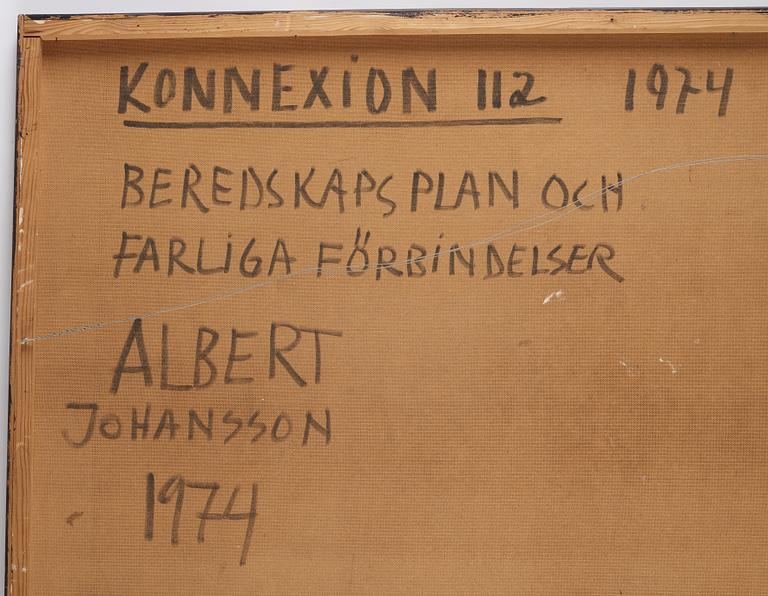 KONNEXION 112 1974
BEREDSKAPSPLAN OCH
FARLIGA FÖRBINDELSER
ALBERT
JOHANSSON
1974